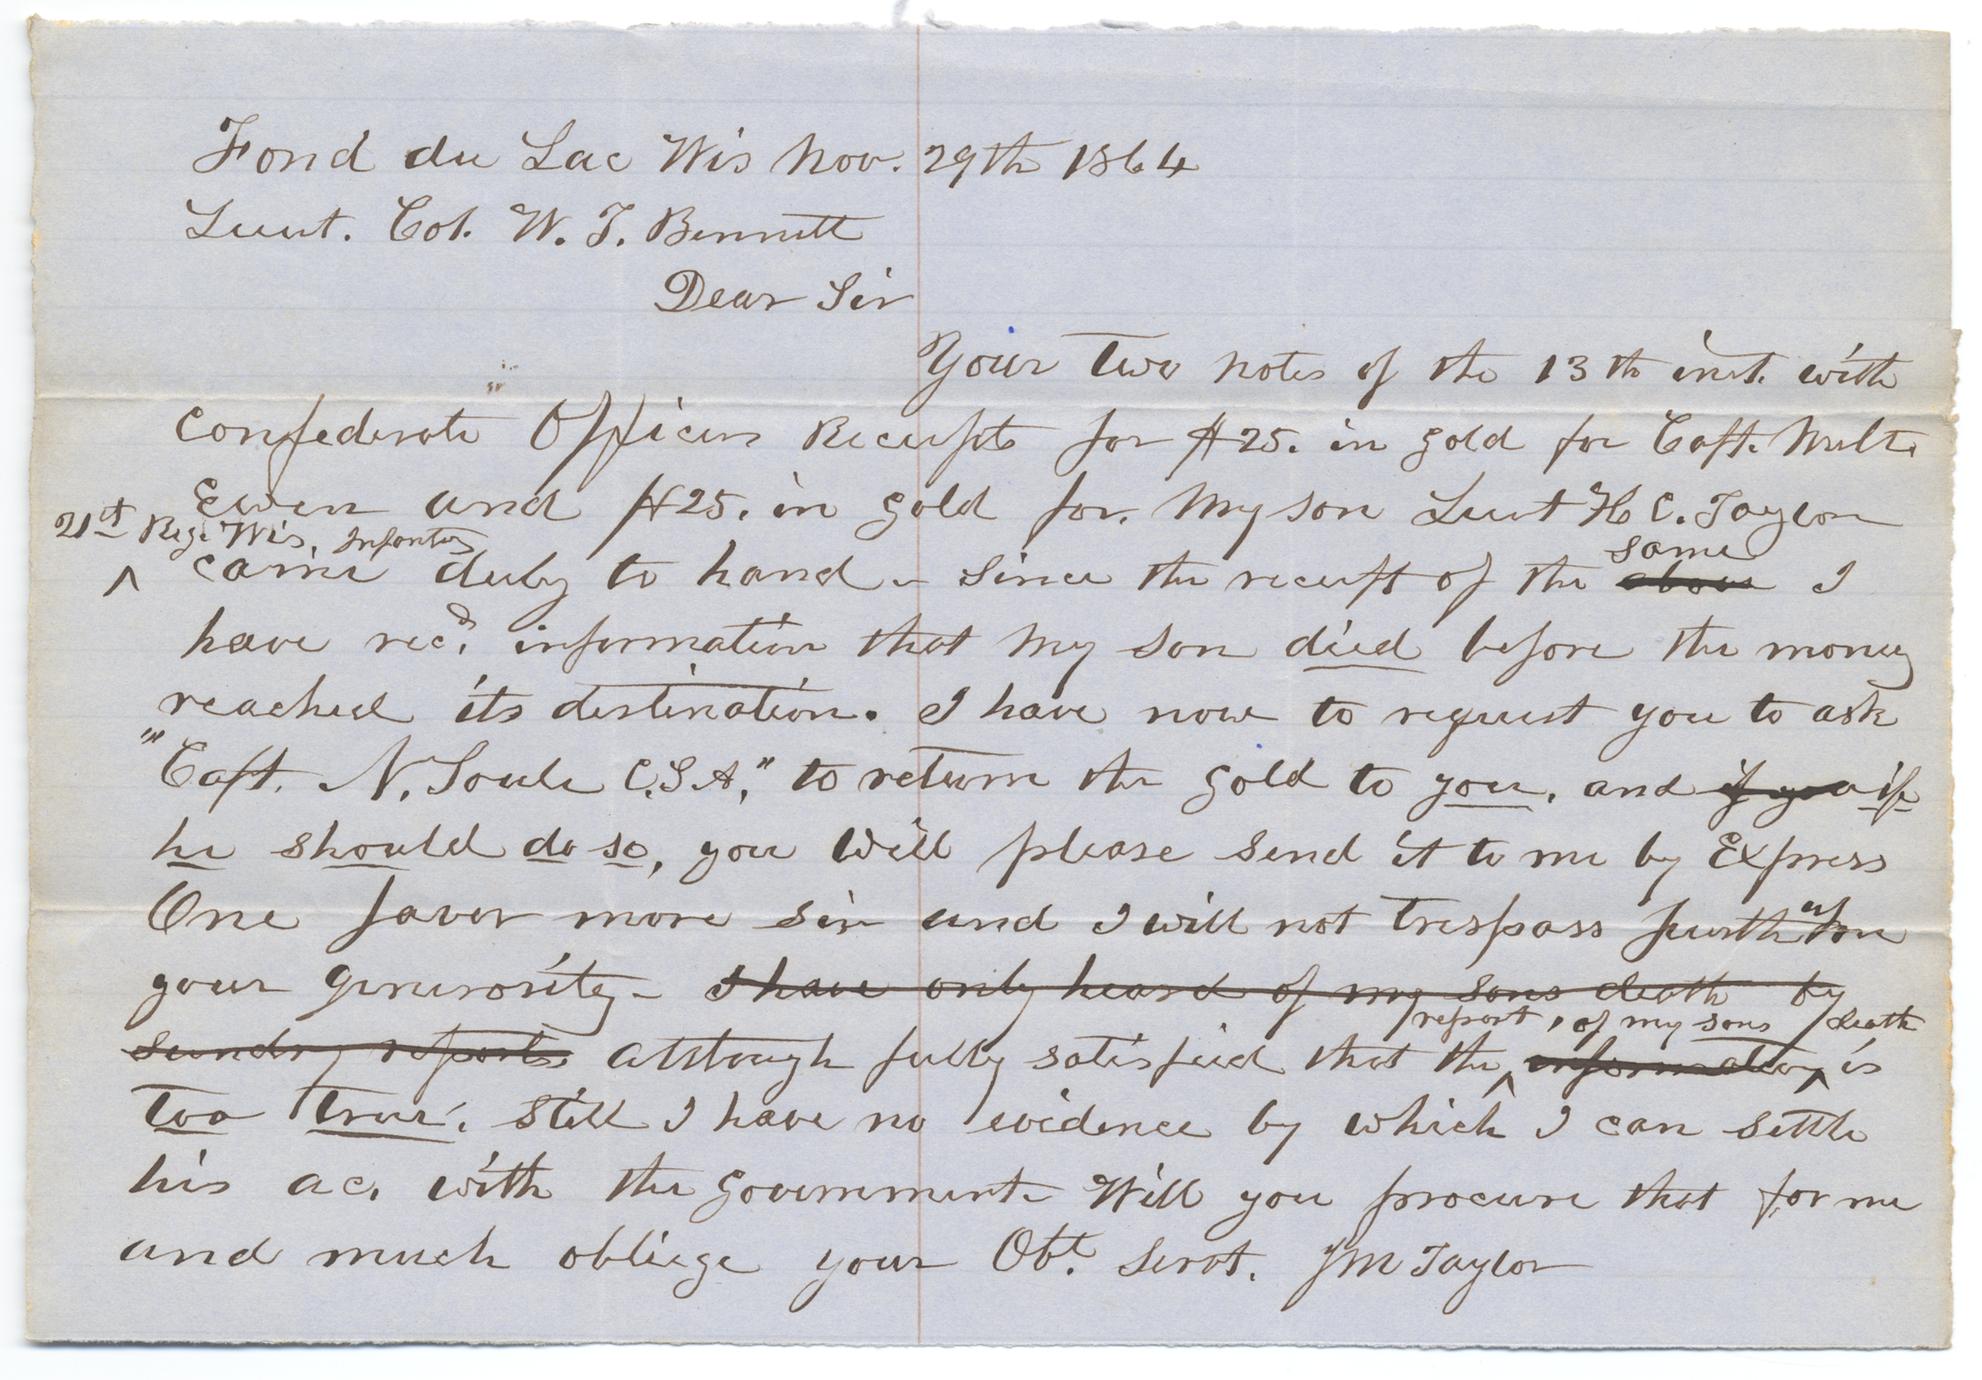 Fond du Lac Wis Nov. 29th 1864
Lieut. Col. W. T. Bennett
Dear Sir
Your Two notes of the 13th inst. with
Confederate Officers Receipts for $25. in gold for Capt. Milt.
Ewen and $25. in gold for. My son Lieut H C. Taylor
21st Reg. Wis. Infantry
same
^ came duly to hand - Since the receipt of the above I
have recd. information that My son died before the money
reached its destination. I have now to request you to ask
"Capt. N. Soule C.S.A." to return the gold to you, and if you if
he should do so, you will please send it to me by Express
One favor more sir and I will not trespass further on
your generosity - I have only heard of my sons death by
report, of my sons death
sundry reports although fully satisfied that the ^ information ^ is
too true. Still I have no evidence by which I can settle
his ac. with the government. Will you procure that for me
and much obliege your Obt. Servt. J M Taylor